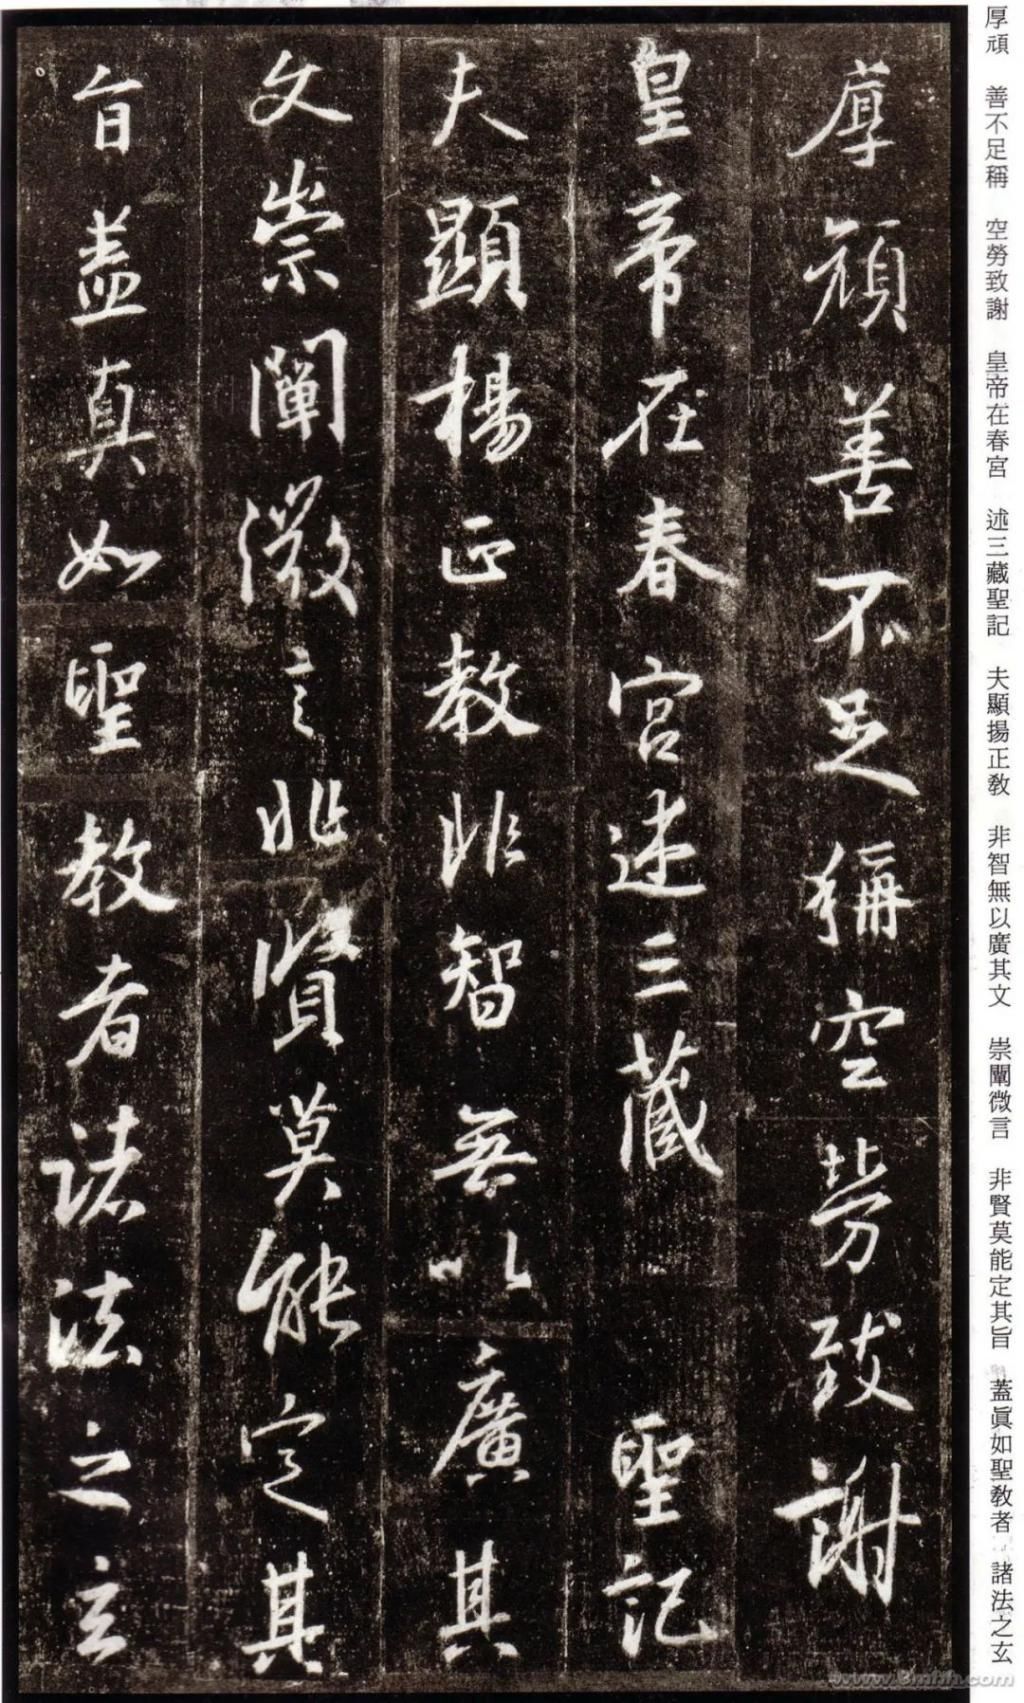 厚頑 善不足稱 空勞致謝 皇帝在春宮 述三藏聖記 夫顯揚正教 非智無以廣其文 崇闡微言 非賢莫能定其旨 蓋眞如聖教者 諸法之玄
厚頑善不足稱空勞致謝
皇帝在春宮述三藏 聖記
夫顯揚正教非智無以廣其
文崇闡微言非賢莫能定其
旨蓋真如聖教者諸法之玄